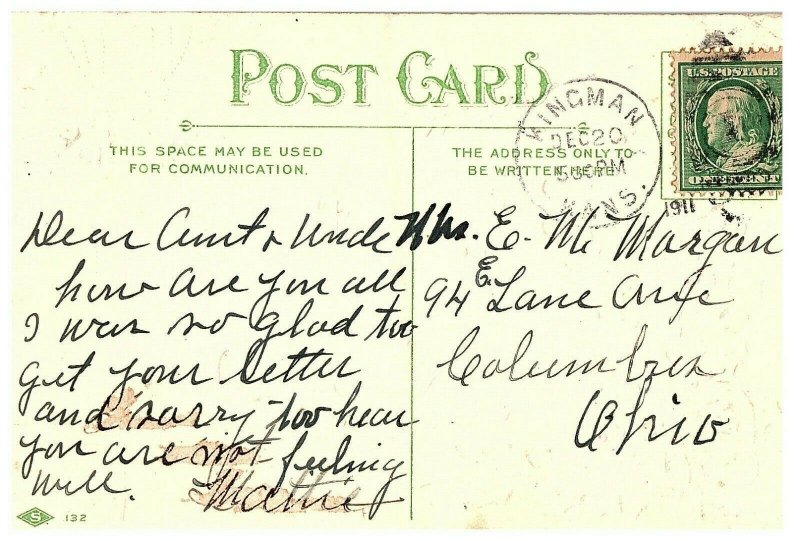 POST CARD
THIS SPACE MAY BE USED
FOR COMMUNICATION.
THE ADDRESS ONLY TO
BE WRITTEN HERE
KINGMAN
DEC 20
PM
KANS.
1911
U.S. POSTAGE
ONE CENT
Dear Aunt & Uncle
how are you all
I was so glad too
get your letter
and sorry too hear
you are not feeling
well. Mattie
Mrs. E. M. Morgan
94 E Lane Ave
Columbus
Ohio
S 132